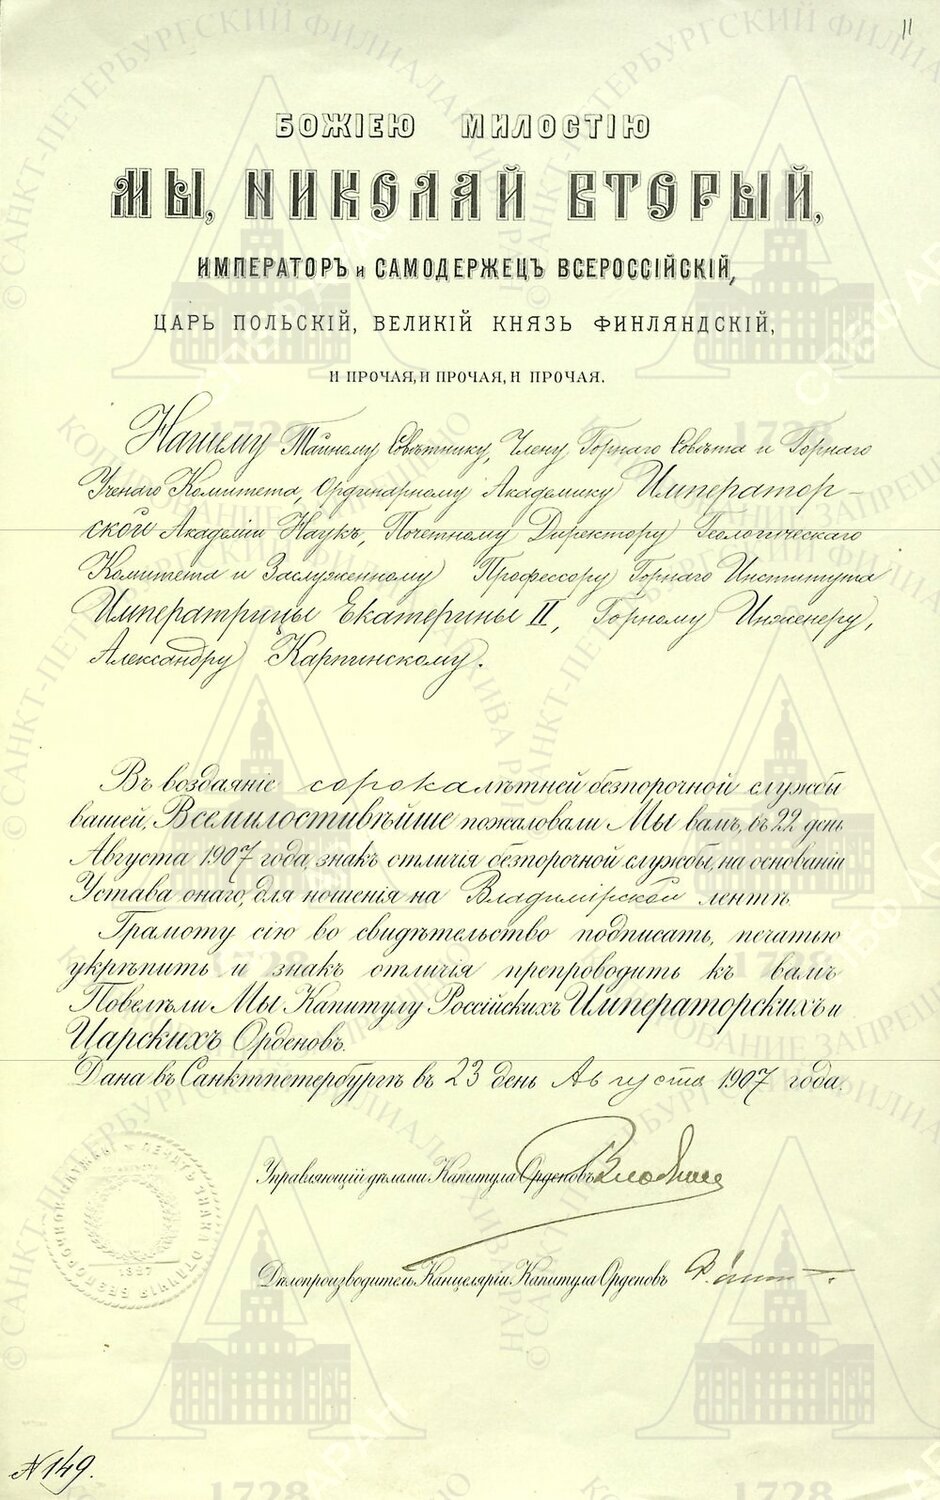 11
БОЖІЕЮ МИЛОСТІЮ
МЫ, НИКОЛАЙ ВТОРЫЙ,
ИМПЕРАТОРЪ и САМОДЕРЖЕЦЪ ВСЕРОССІЙСКІЙ,
ЦАРЬ ПОЛЬСКІЙ, ВЕЛИКІЙ КНЯЗЬ ФИНЛЯНДСКІЙ,
И ПРОЧАЯ, И ПРОЧАЯ, И ПРОЧАЯ.
Нашему Тайному Совѣтнику, Члену Горнаго Совѣта и Горнаго
Ученаго Комитета, Ординарному Академику Император-
ской Академіи Наукъ, Почетному Директору Геологическаго
Комитета и Заслуженному Профессору Горнаго Института
Императрицы Екатерины II, Горному Инженеру,
Александру Карпинскому.
Въ воздаяніе сорокалѣтней безпорочной службы
вашей, Всемилостивѣйше пожаловали Мы вамъ, въ 22 день
Августа 1907 года, знакъ отличія безпорочной службы, на основаніи
Устава онаго, для ношенія на Владимірской лентѣ.
Грамоту сію во свидѣтельство подписать, печатью
укрѣпить и знакъ отличія препроводить къ вамъ
Повелѣли Мы Капитулу Россійскихъ Императорскихъ и
Царскихъ Орденовъ.
Дана въ Санктпетербургѣ въ 23 день Августа 1907 года.
Управляющій дѣлами Капитула Орденовъ
Дѣлопроизводитель Канцеляріи Капитула Орденовъ
ПЕЧАТЬ ЗНАКА ОТЛИЧІЯ БЕЗПОРОЧНОЙ СЛУЖБЫ
№ 149.
© САНКТ-ПЕТЕРБУРГСКИЙ ФИЛИАЛ АРХИВА РАН
КОПИРОВАНИЕ ЗАПРЕЩЕНО
СПБФ АРАН
1728